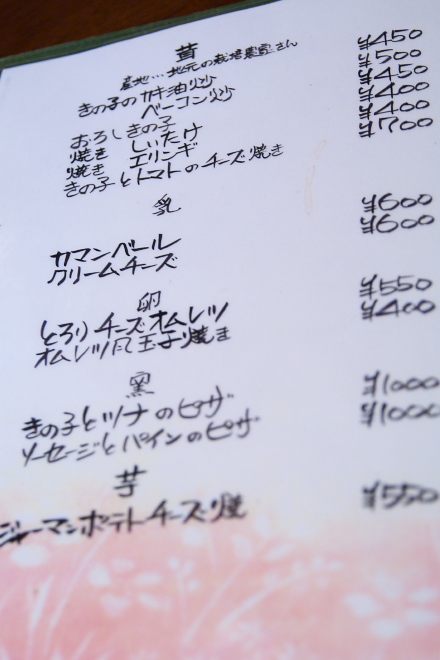 茸
産地…地元の栽培農家さん
きの子のカキ油炒 ¥450
ベーコン炒 ¥500
おろしきの子 ¥450
焼き しいたけ ¥400
焼き エリンギ ¥400
きの子とトマトのチーズ焼き ¥700
乳
カマンベール ¥600
クリームチーズ ¥600
卵
とろりチーズオムレツ ¥550
オムレツ風玉子焼き ¥400
窯
きの子とツナのピザ ¥1000
ソーセージとパインのピザ ¥1000
芋
ジャーマンポテトチーズ焼 ¥550